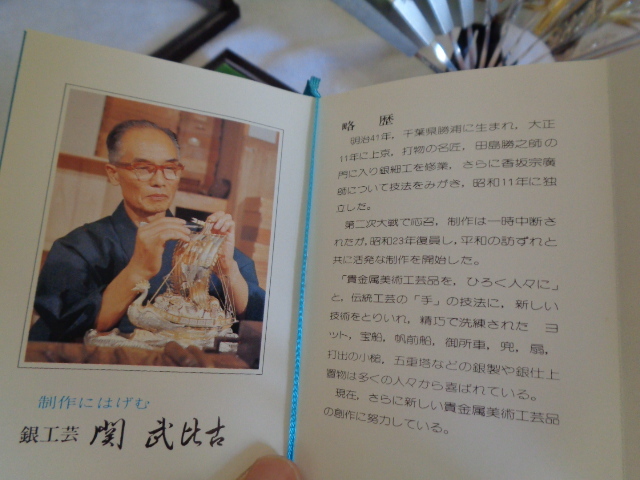 制作にはげむ
銀工芸 関 武比古
略 歴
明治41年，千葉県勝浦に生まれ，大正
11年に上京，打物の名匠，田島勝之師の
門に入り銀細工を修業，さらに香坂宗廣
師について技法をみがき，昭和11年に独
立した。
第二次大戦で応召，制作は一時中断さ
れたが，昭和23年復員し，平和の訪ずれと
共に活発な制作を開始した。
「貴金属美術工芸品を，ひろく人々に」
と，伝統工芸の「手」の技法に，新しい
技術をとりいれ，精巧で洗練された ヨ
ット，宝船，帆前船，御所車，兜，扇，
打出の小槌，五重塔などの銀製や銀仕上
置物は多くの人々から喜ばれている。
現在，さらに新しい貴金属美術工芸品
の創作に努力している。